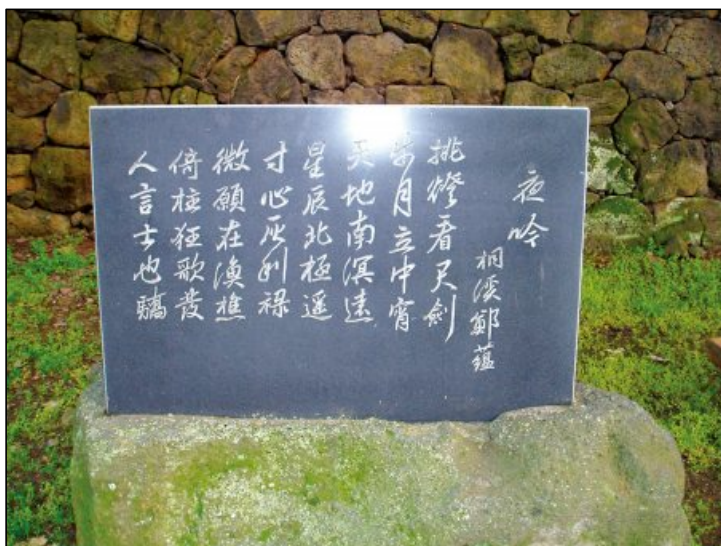 夜吟
桐溪鄭蘊
挑燈看尺劍
月立中宵
天地南溟遠
星辰北極遥
寸心灰利禄
微願在漁樵
倚柱狂歌發
人言士也驕